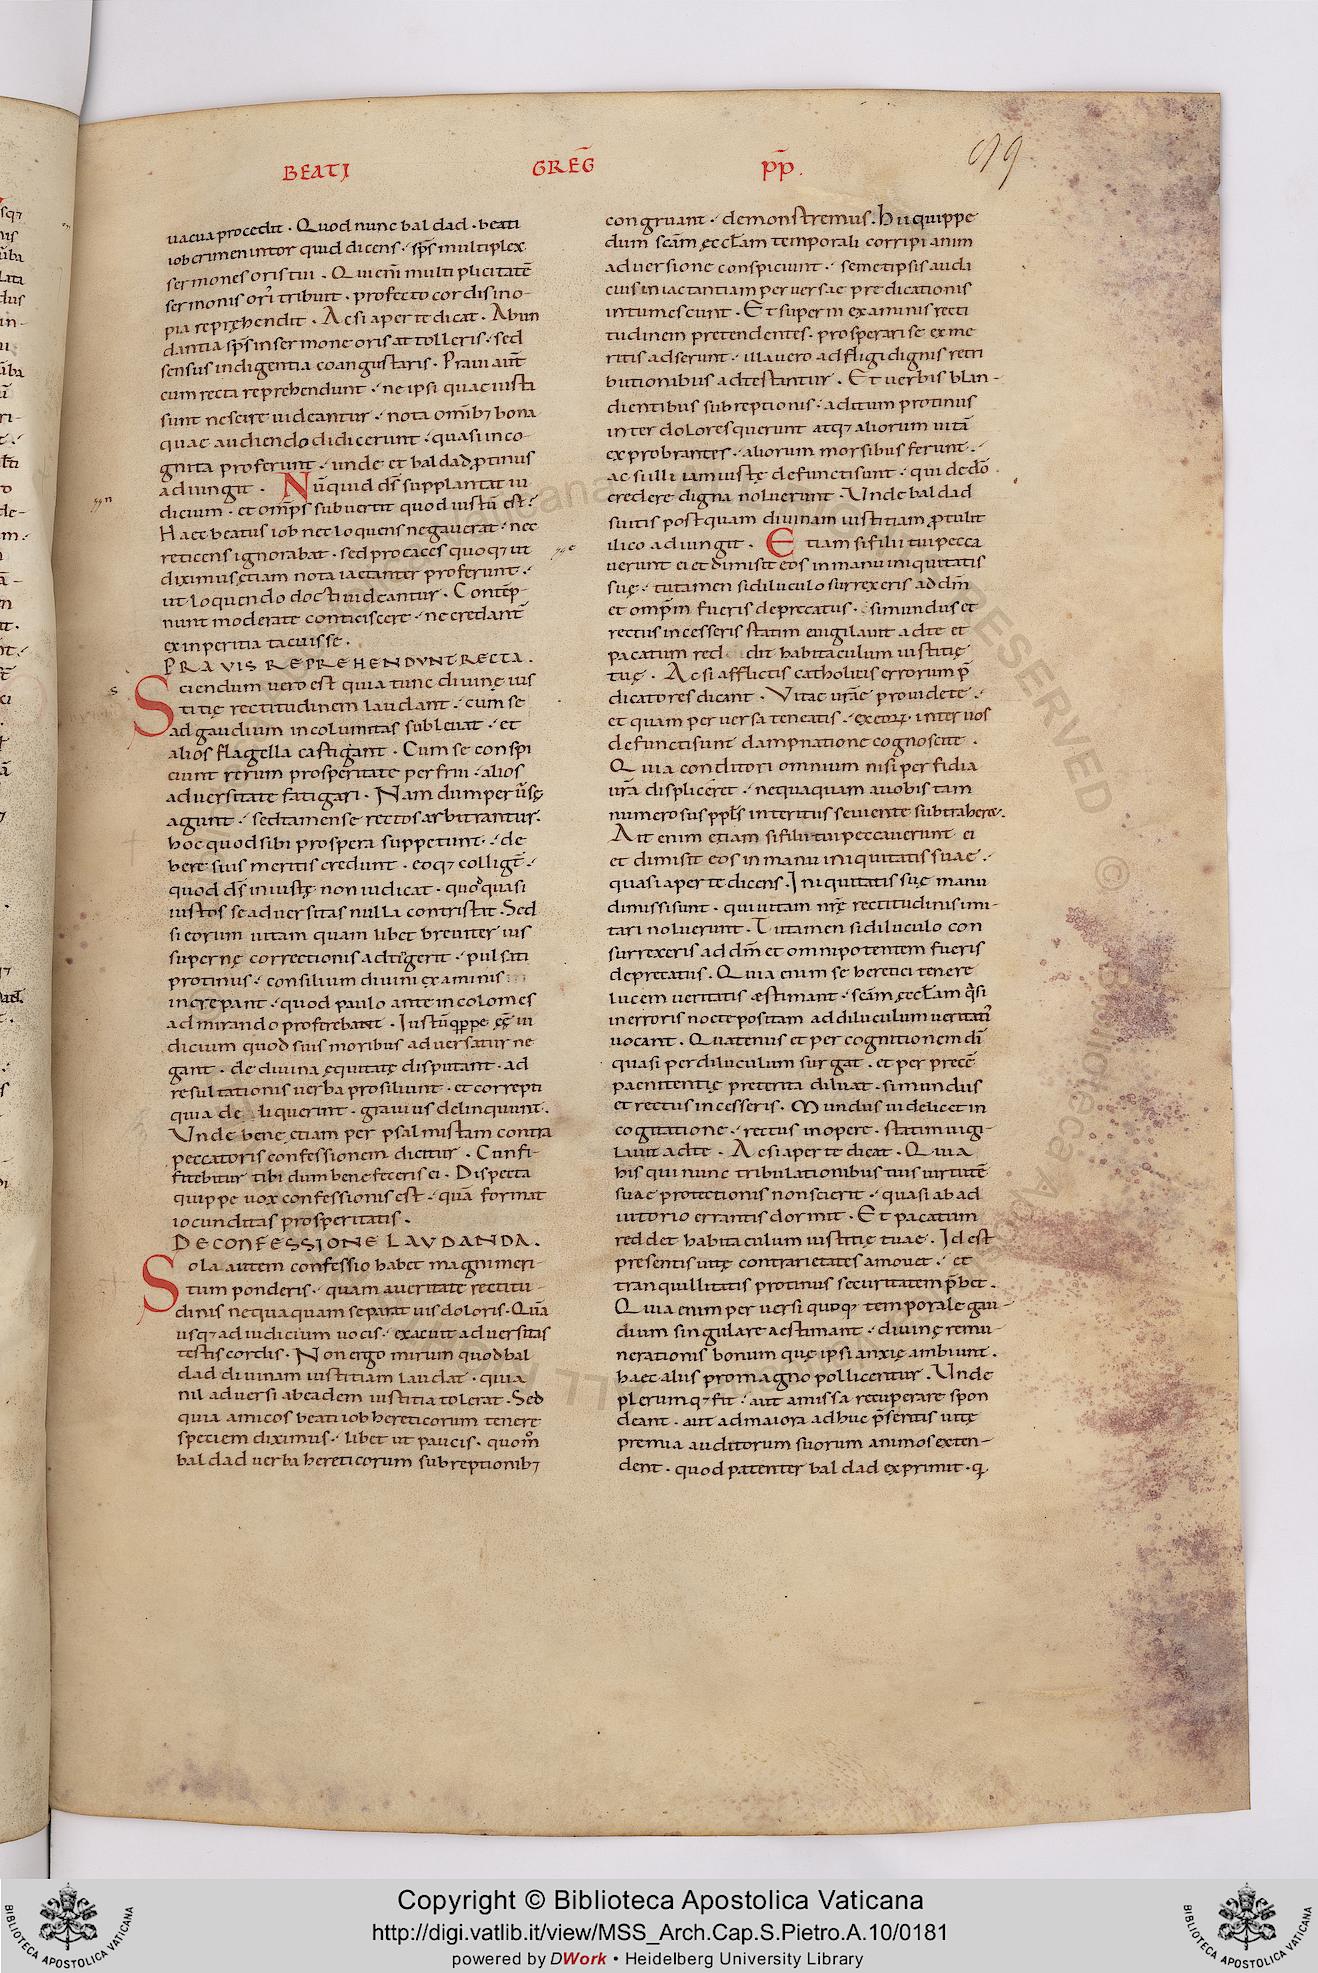 BEATI GREḠ P̄P̄.
uacua procedit · Quod nunc baldad · beati
iob crimen intor quid dicens · sp̄s multiplex
sermones oris tui . Qui eni̅ multiplicitate̅
sermonis ori tribuit · profecto cordis ino-
pia repręhendit . Ac si aperte dicat . Abun
dantia sp̄s in sermone oris attolleris · sed
sensus indigentia coangustaris . Praui aut̅
cum recta reprehendunt · ne ipsi quae iusta
sunt nescire uideantur · nota omnib; bona
quae audiendo didicerunt · quasi inco-
gnita proferunt · unde et baldad protinus
adiungit . Nu̅quid ds̅ supplantat iu
dicium · et omp̅s subuertit quod iustu̅ est ·
Haec beatus iob nec loquens negauerat · nec
reticens ignorabat · sed procaces quoq; ut
diximus ętiam nota iactanter proferunt ·
ut loquendo docti uideantur . Conte̅p-
nunt moderate conticiscere · ne credant̅
ex inperitia tacuisse .
PRAVIS REPREHENDVNT RECTA .
Sciendum uero est quia tunc diuinę ius
titię rectitudinem laudant · cum se
ad gaudium incolumitas subleuat · et
alios flagella castigant . Cum se conspi
ciunt rerum prosperitate perfrui · alios
aduersitate fatigari . Nam dum peruersę
agunt · sed tamen se rectos arbitrantur ·
hoc quod sibi prospera suppetunt · de
bere suis meritis credunt · eoq; colligt̅ ·
quod ds̅ iniustę non iudicat · quod quasi
iustos se aduersitas nulla contristit . Sed
si eorum uitam quam libet breuiter uis
supernę correctionis adtigerit · pulsati
protinus · consilium diuini examinis
increpant · quod paulo ante incolomes
admirando proferebant . Iustu̅ quippe eę̅ iu
dicium quod suis moribus aduersatur ne
gant · de diuina ęquitatę disputant · ad
resultationis uerba prosiliunt · et correpti
quia deliquerint · grauius delinquunt .
Vnde bene ętiam per psalmistam contra
peccatoris confessionem dicitur . Confi-
titebitur tibi dum bene feceris ei . Dispecta
quippe uox confessionis est · qua̅ format
iocunditas prosperitatis .
DE CONFESSIONE LAVDANDA .
Sola autem confessio habet magni meri
tum ponderis · quam a ueritate rectitu-
dinis nequaquam separat uis doloris . Qua̅
usq; ad iudicium uocis · exacuit aduersitas
testis cordis . Non ergo mirum quod bal
dad diuinam iustitiam laudat · quia
nil aduersi ab eadem iustitia tolerat . Sed
quia amicos beati iob hereticorum tenere
speciem diximus · libet ut paucis · quom̊
baldad uerba hereticorum subreptionib;
congruant · demonstremus . Hii quippe
dum sc̅am ęccl̅am temporali corripi anim
aduersione conspiciunt · semetipsis auda
cius in iactantiam peruersae predicationis
intumescunt . Et superni examinis recti
tudinem pretendentes · prosperari se ex me
ritis adserunt · illa uero adfligi dignis retri
butionibus adtestantur . Et uerbis blan-
dientibus subreptionis · aditum protinus
inter dolores querunt atq; aliorum uita̅
exprobrantes · aliorum morsibus ferunt ·
ac si illi iam iustę defuncti sunt · qui de do̅
credere digna noluerunt . Vnde baldad
suitis postquam diuinam iustitiam protulit
ilico adiungit . Etiam si filii tui pecca
uerunt ei et dimisit eos in manu iniquitatis
suę · tu tamen si diluculo surrexeris ad dm̅
et omp̅m fueris deprecatus · si mundus et
rectus incesseris statim euigilauit ad te et
pacatum reddit habitaculum iustitię
tuę . Ac si afflictis catholicis errorum p̅
dicatores dicant . Vitae ur̅ae prouidete ·
et quam peruersa teneatis · ex eorum inter uos
defuncti sunt dampnatione cognoscite .
Quia conditori omnium nisi perfidia
ur̅a displiceret · nequaquam a uobis tam
numerosus ppl̅s interitus seuiente subtraheret .
Ait enim etiam si filii tui peccauerunt ei
et dimisit eos in manu iniquitatis suae ·
quasi aperte dicens . Iniquitatis suę manu
dimissi sunt · qui uitam nr̅ę rectitudinis imi-
tari noluerunt . Tu tamen si diluculo con
surrexeris ad dm̅ et omnipotentem fueris
deprecatus . Quia enim se heretici tenere
lucem ueritatis ęstimant · sc̅am ęccl̅am qͣsi
in erroris nocte positam ad diluculum ueritati
uocant . Quatenus et per cognitionem di̅
quasi per diluculum surgat · et per prece̅
paenitentię preterita diluat · si mundus
et rectus incesseris . Mundus uidelicet in
cogitatione · rectus in opere · statim uigi-
lauit ad te . Ac si aperte dicat . Quia
his qui nunc tribulationibus tuis uirtute̅
suae protectionis non scierit · quasi ab ad
iutorio errantis dormit . Et pacatum
reddet habitaculum iustitię tuae . Id est
presentis uitę contrarietates amouet · et
tranquillitatis protinus securitatem p̅bet .
Quia enim peruersi quoq; temporale gau-
dium singulare aestimant · diuinę remu-
nerationis bonum quę ipsi anxię ambiunt .
haec aliis pro magno pollicentur . Vnde
plerumq; fit · aut amissa recuperare spon
deant · aut ad maiora adhuc p̅sentis uitę
premia auditorum suorum animos exten-
dent · quod patenter baldad exprimit · q
Copyright © Biblioteca Apostolica Vaticana
http://digi.vatlib.it/view/MSS_Arch.Cap.S.Pietro.A.10/0181
powered by DWork • Heidelberg University Library